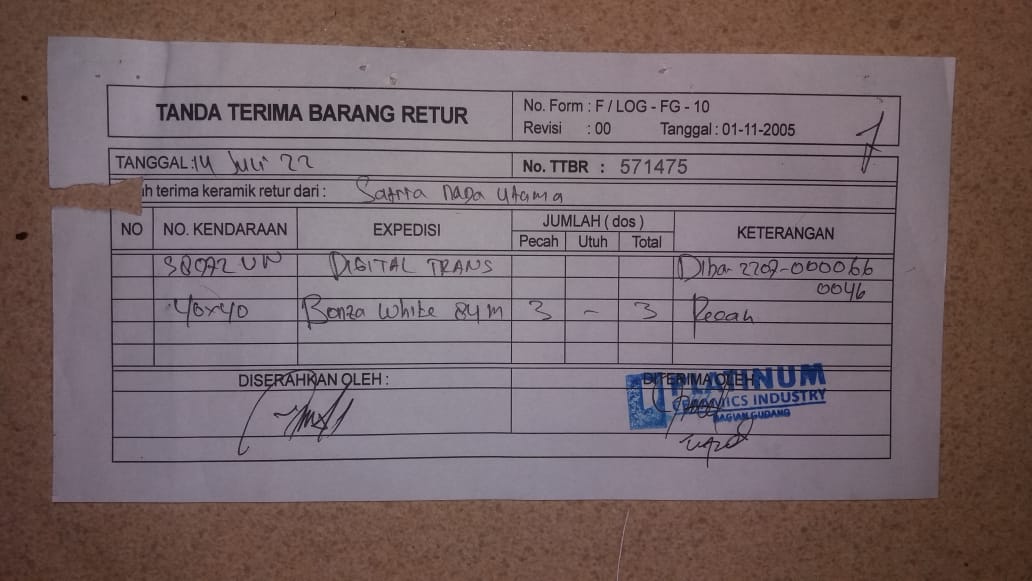 TANDA TERIMA BARANG RETUR
No. Form : F / LOG - FG - 10
Revisi : 00 Tanggal : 01-11-2005
TANGGAL : 14 Juli 22
No. TTBR : 571475
h terima keramik retur dari : Satria Naga Utama
NO NO. KENDARAAN EXPEDISI JUMLAH ( dos ) KETERANGAN
Pecah Utuh Total
UN DIGITAL TRANS 2207-000066
0046
40x40 Bonza White 84 M 3 - 3 Pecah
DISERAHKAN OLEH : DITERIMA OLEH :
PLATINUM
CERAMICS INDUSTRY
BAGIAN GUDANG